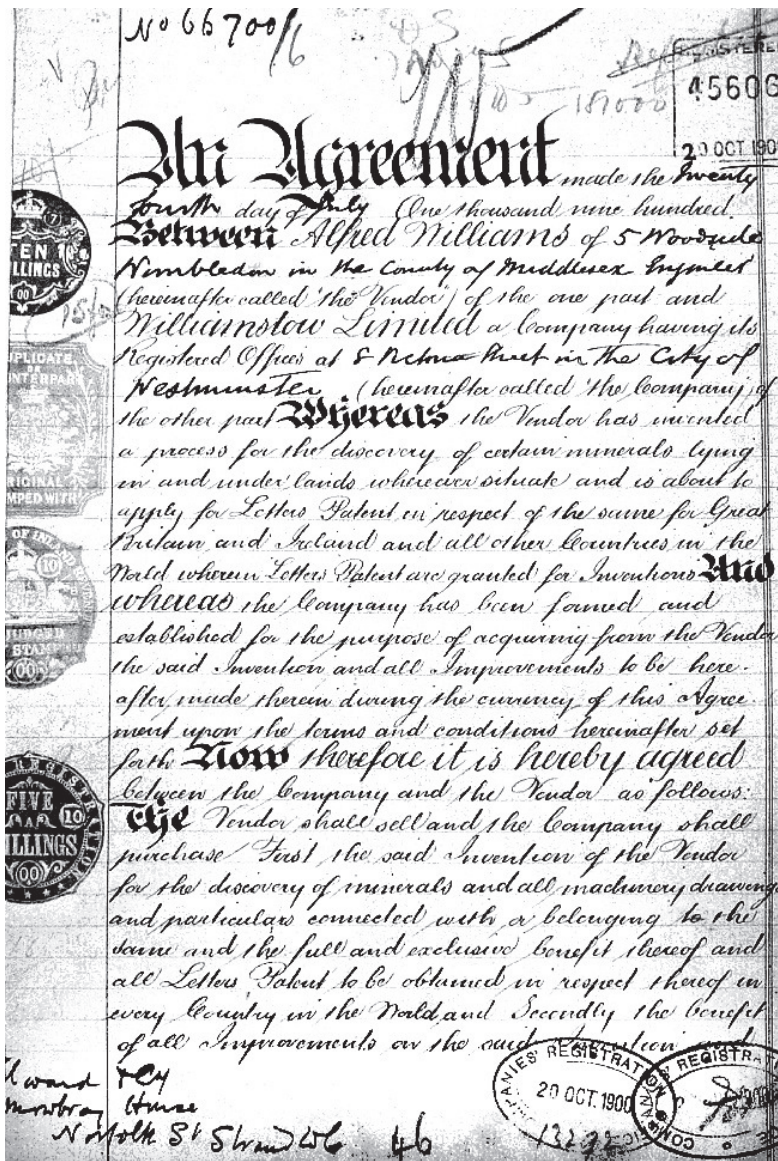 No 66700/6
187000
REGISTERED
45606
20 OCT. 1900
An Agreement made the Twenty
fourth day of July One thousand nine hundred
Between Alfred Williams of 5 Woodside
Wimbledon in the County of Middlesex Engineer
(hereinafter called 'the Vendor') of the one part and
Williamstow Limited a Company having its
Registered Offices at 8 Victoria Street in the City of
Westminster (hereinafter called 'the Company') of
the other part Whereas the Vendor has invented
a process for the discovery of certain minerals lying
in and under lands wherever situate and is about to
apply for Letters Patent in respect of the same for Great
Britain and Ireland and all other Countries in the
World wherein Letters Patent are granted for Inventions And
whereas the Company has been formed and
established for the purpose of acquiring from the Vendor
the said Invention and all Improvements to be here-
after made therein during the currency of this Agree-
ment upon the terms and conditions hereinafter set
forth Now therefore it is hereby agreed
between the Company and the Vendor as follows:
The Vendor shall sell and the Company shall
purchase First the said Invention of the Vendor
for the discovery of minerals and all machinery drawings
and particulars connected with or belonging to the
same and the full and exclusive benefit thereof and
all Letters Patent to be obtained in respect thereof in
every Country in the World and Secondly the benefit
of all Improvements on the said Invention and
Mowbray House
Norfolk St Strand WC
46
TEN
LLINGS
00
UPLICATE
OR
UNTERPART
RIGINAL
MPED WITH
OF INLAND
10
JUDGED
STAMP
00
REGISTRATION
FIVE
10
LLINGS
00
PANIES' REGISTRATION
20 OCT. 1900
REGISTRA
COM